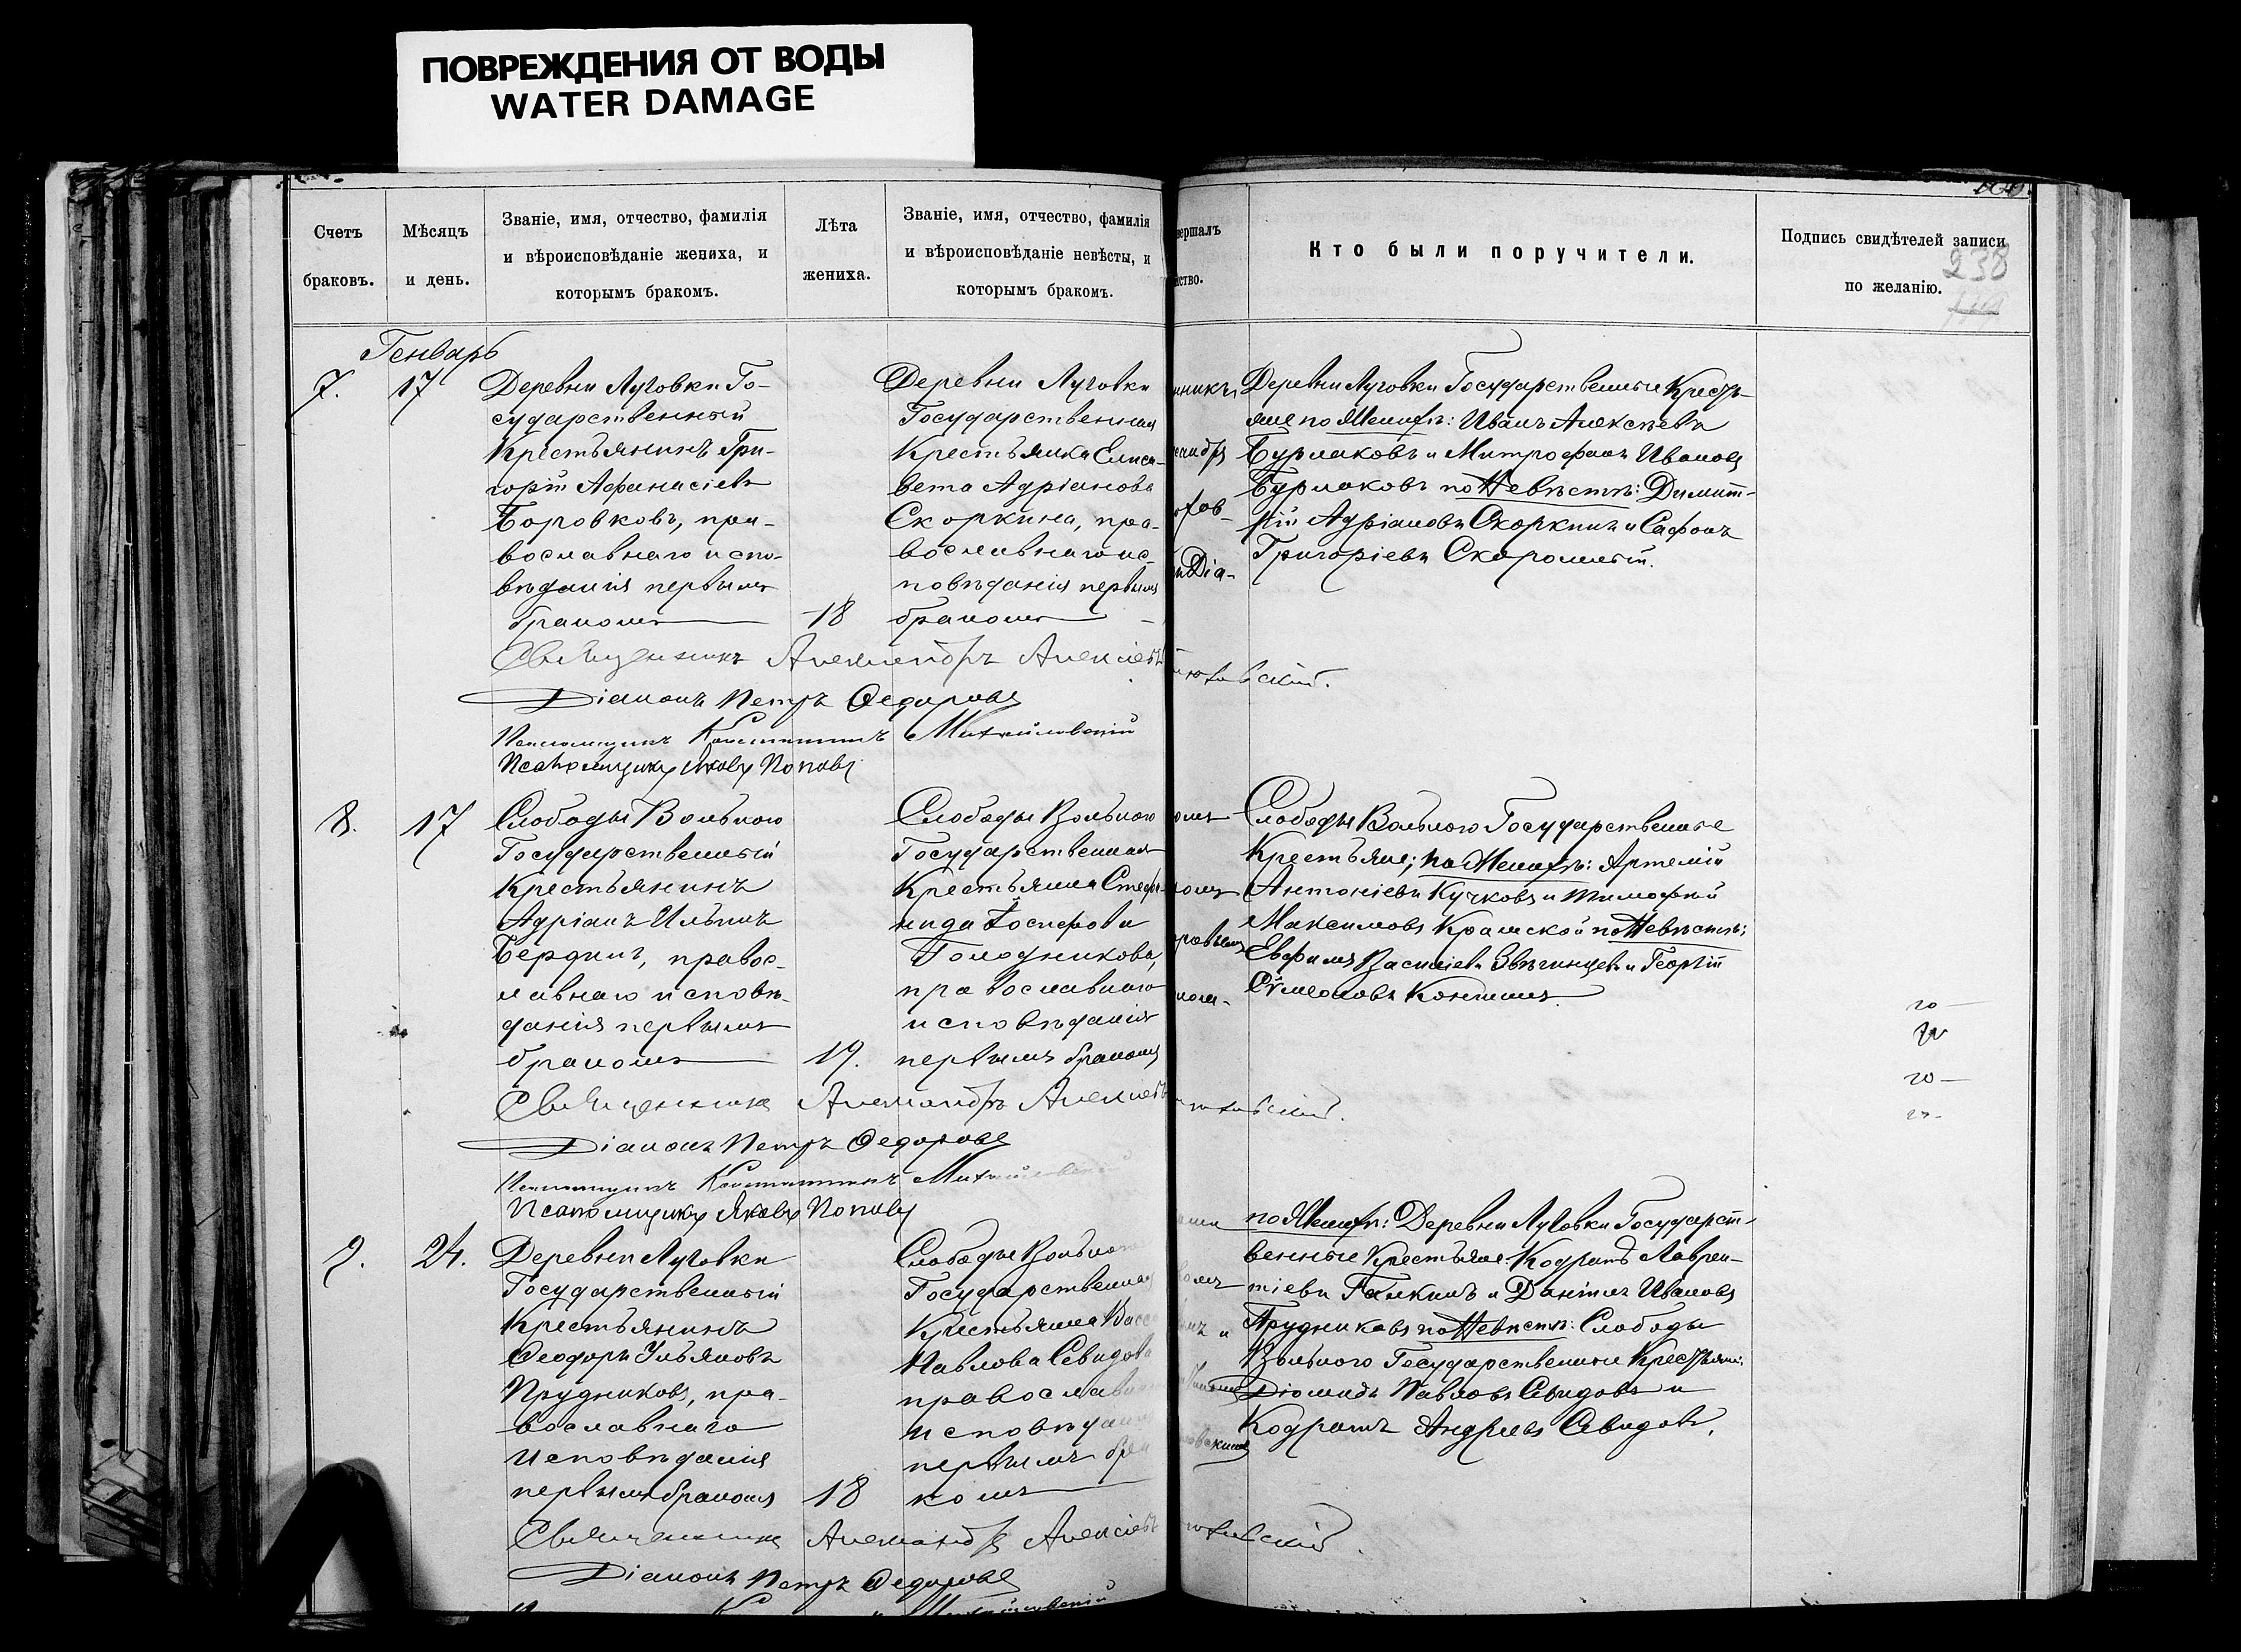 ПОВРЕЖДЕНИЯ ОТ ВОДЫ
WATER DAMAGE
Счетъ
браковъ.
Мѣсяцъ
и день.
Званіе, имя, отчество, фамилія
и вѣроисповѣданіе жениха, и
которымъ бракомъ.
Лѣта
жениха.
Званіе, имя, отчество, фамилія
и вѣроисповѣданіе невѣсты, и
которымъ бракомъ.
вершалъ
нство.
Кто были поручители.
Подпись свидѣтелей записи
по желанію.
238
Генварь
7.
17
Деревни Луговки Го-
сударственный
Крестьянинъ Гри-
горій Афанасіевъ
Боровковъ, пра-
вославнаго испо-
вѣданія первымъ
бракомъ
18
Деревни Луговки
Государственная
Крестьянка Елиса-
вета Адріанова
Скоркина, пра-
вославнаго ис-
повѣданія первымъ
бракомъ
Деревни Луговки Государственные Кресть-
яне по Женихѣ: Иванъ Алексѣевъ
Бурлаковъ и Митрофанъ Ивановъ
Бурлаковъ по Невѣстѣ: Димит-
рій Адріановъ Скоркинъ и Сафонъ
Григоріевъ Скоромный.
Священникъ Александръ Алексіевъ
Діаконъ Петръ Федоровъ
Псаломщикъ Константинъ Михайловскій
Псаломщикъ Яковъ Поповъ
8.
17
Слободы Вольного
Государственный
Крестьянинъ
Адріанъ Ильинъ
Бердинъ, правос-
лавнаго исповѣ-
данія первымъ
бракомъ
19.
Слободы Вольного
Государственная
Крестьянка Стефа-
нида Іосифова
Голодникова,
православного
исповѣданія
первымъ бракомъ
Слободы Вольного Государственные
Крестьяне; по Женихѣ: Артемій
Антоніевъ Кучковъ и Тимофей
Максимовъ Крамской по Невѣстѣ:
Евфимъ Василіевъ Звѣгинцевъ и Георгій
Сѵмеоновъ Коншинъ.
Священникъ Александръ Алексіевъ
Діаконъ Петръ Федоровъ
Псаломщикъ Константинъ Михайловскій
Псаломщикъ Яковъ Поповъ
9.
24.
Деревни Луговки
Государственный
Крестьянинъ
Феодоръ Ульяновъ
Прудниковъ, пра-
вославнаго
исповѣданія
первымъ бракомъ
18
Слободы Вольного
Государственная
Крестьянка Васс
Павлова Свидова
православн
исповѣдан
первымъ бра
комъ
по Женихѣ: Деревни Луговки Государст-
венные Крестьяне: Кодратъ Лаврен-
тіевъ Галкинъ и Даніилъ Ивановъ
Прудниковъ по Невѣстѣ: Слободы
Вольного Государственные Крестьяне:
Діомидъ Павловъ Свидовъ и
Кодратъ Андреевъ Свидовъ.
Священникъ Александръ Алексіевъ
Діаконъ Петръ Федоровъ